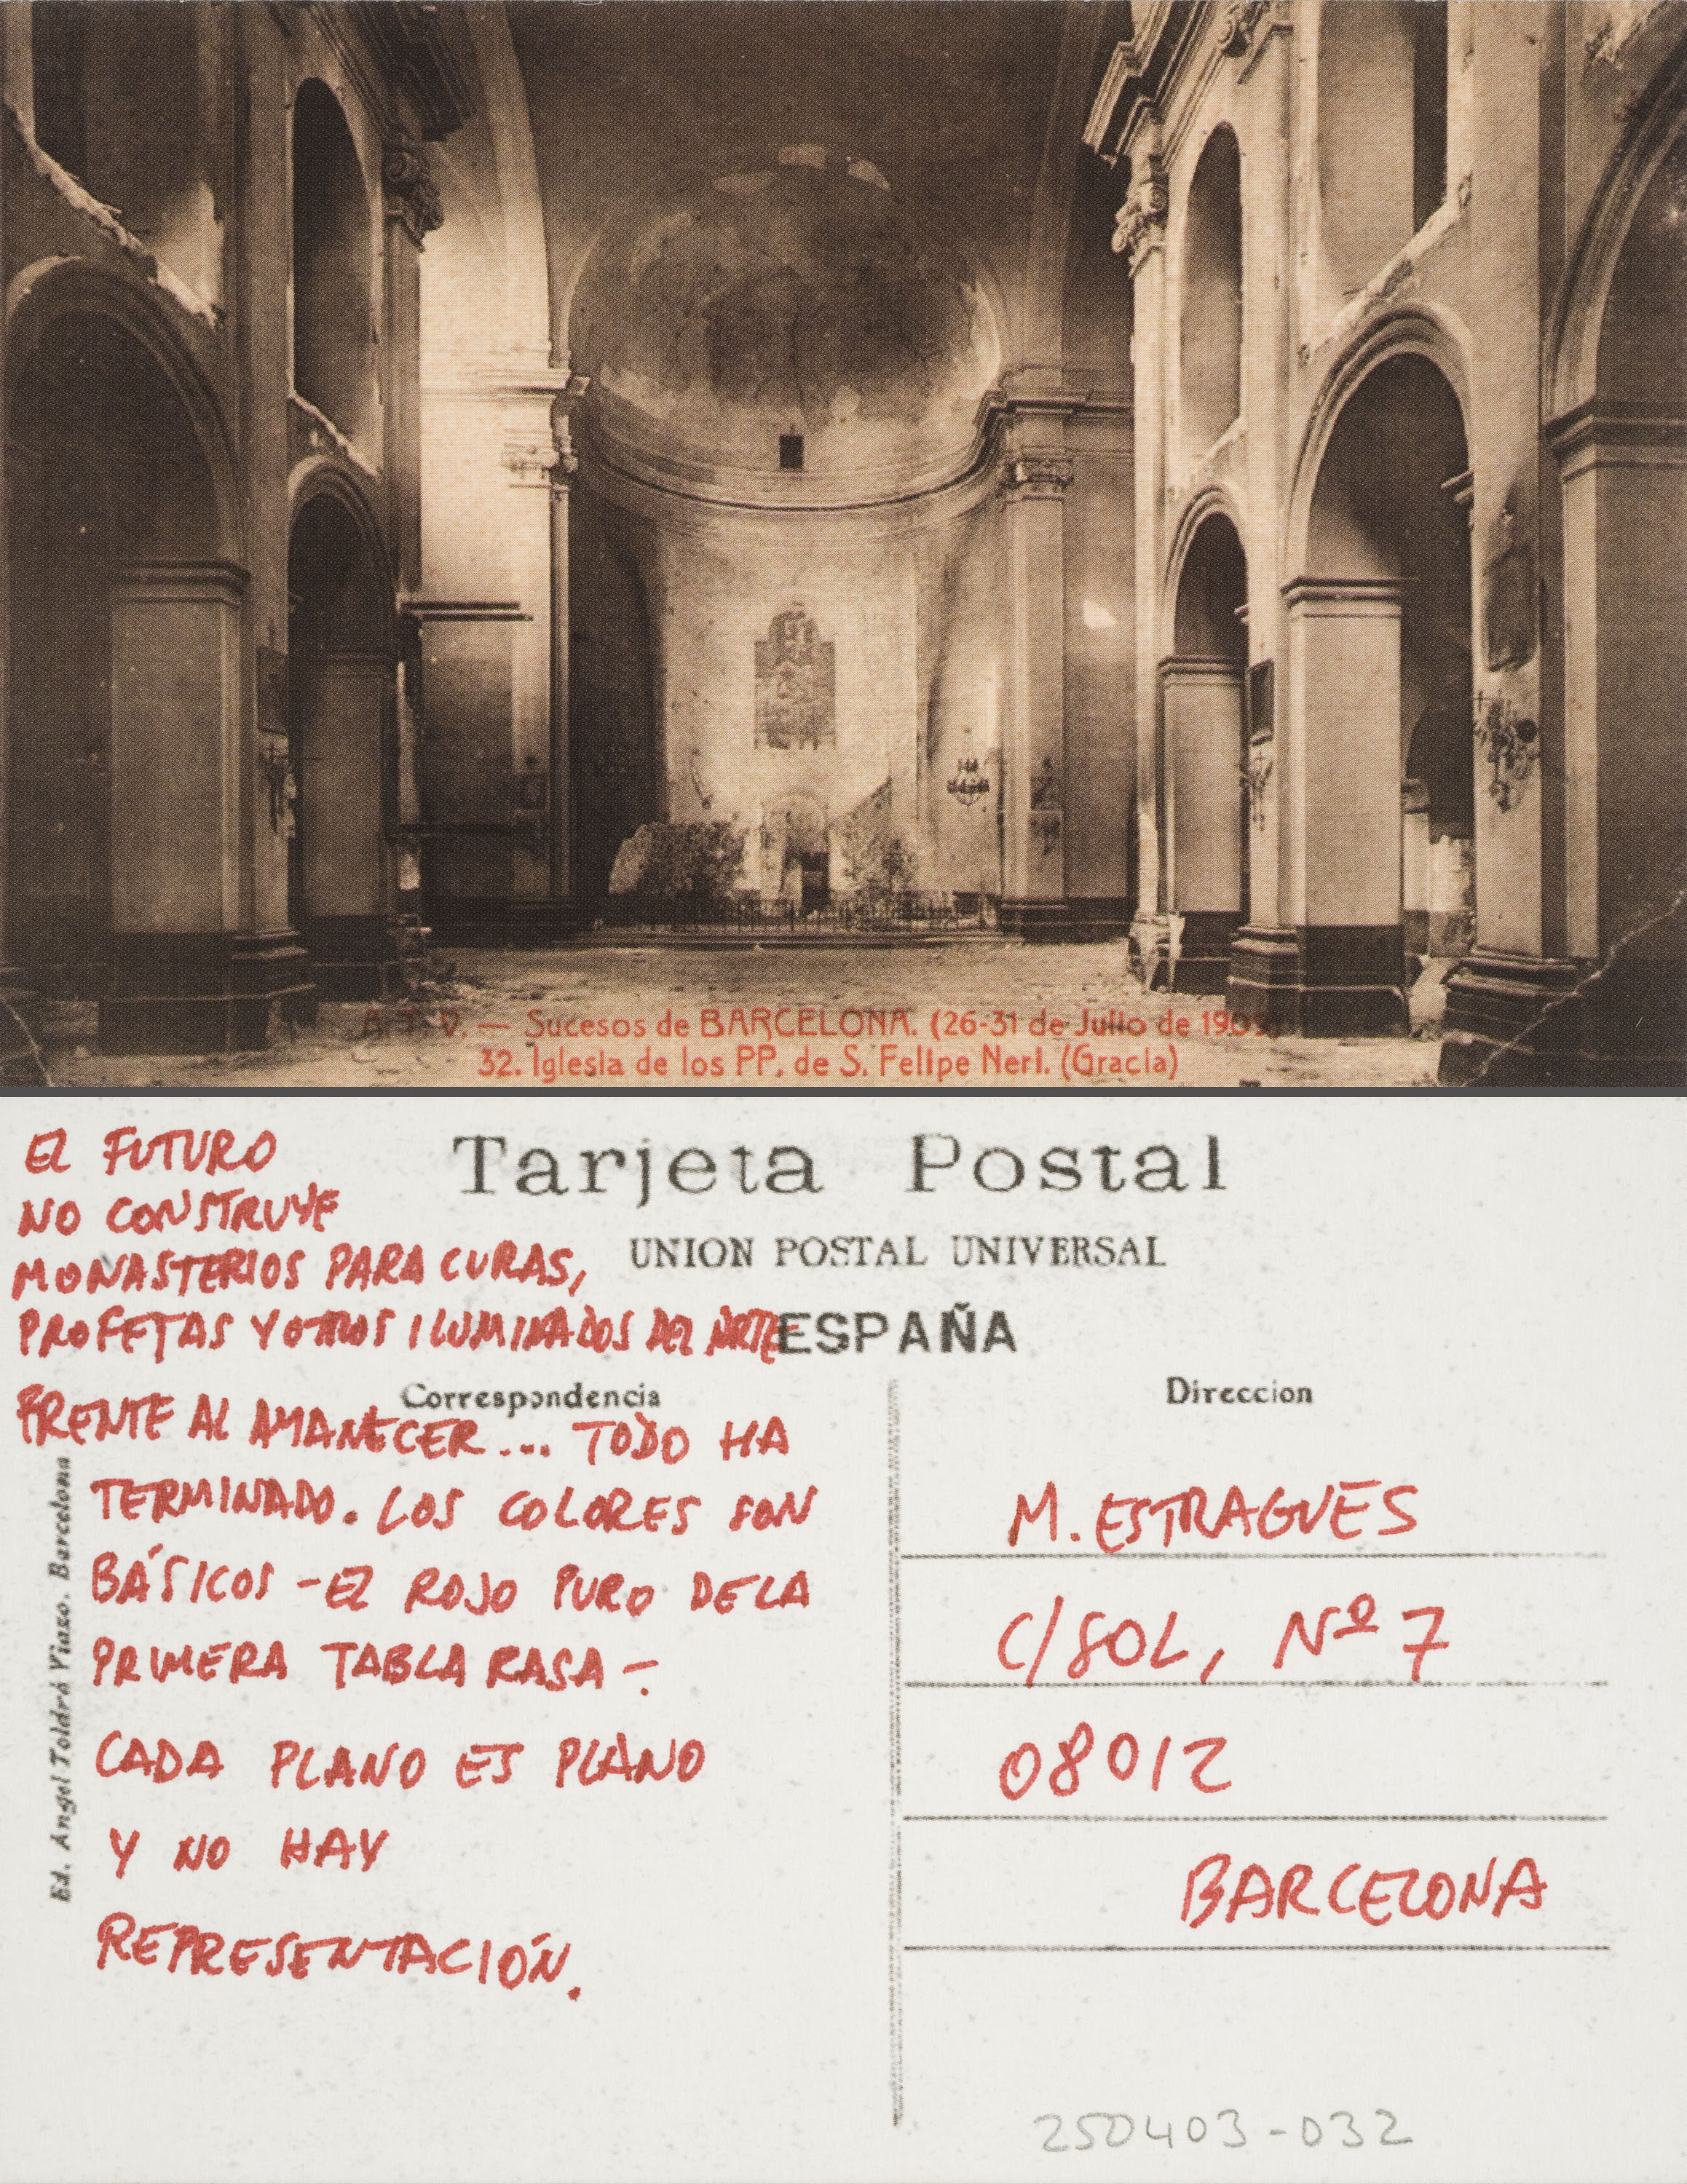 A. T. V. — Sucesos de BARCELONA. (26-31 de Julio de 1909)
32. Iglesia de los PP. de S. Felipe Neri. (Gracia)
Tarjeta Postal
UNION POSTAL UNIVERSAL
ESPAÑA
Correspondencia
EL FUTURO
NO CONSTRUYE
MONASTERIOS PARA CURAS,
PROFETAS Y OTROS ILUMINADOS DEL ARTE
FRENTE AL AMANECER... TODO HA
TERMINADO. LOS COLORES SON
BÁSICOS - EL ROJO PURO DE LA
PRIMERA TABLA RASA -.
CADA PLANO ES PLANO
Y NO HAY
REPRESENTACIÓN.
Ed. Ángel Toldrá Viazo. Barcelona
Direccion
M. ESTRAGUÉS
C/SOL, Nº 7
08012
BARCELONA
250403-032